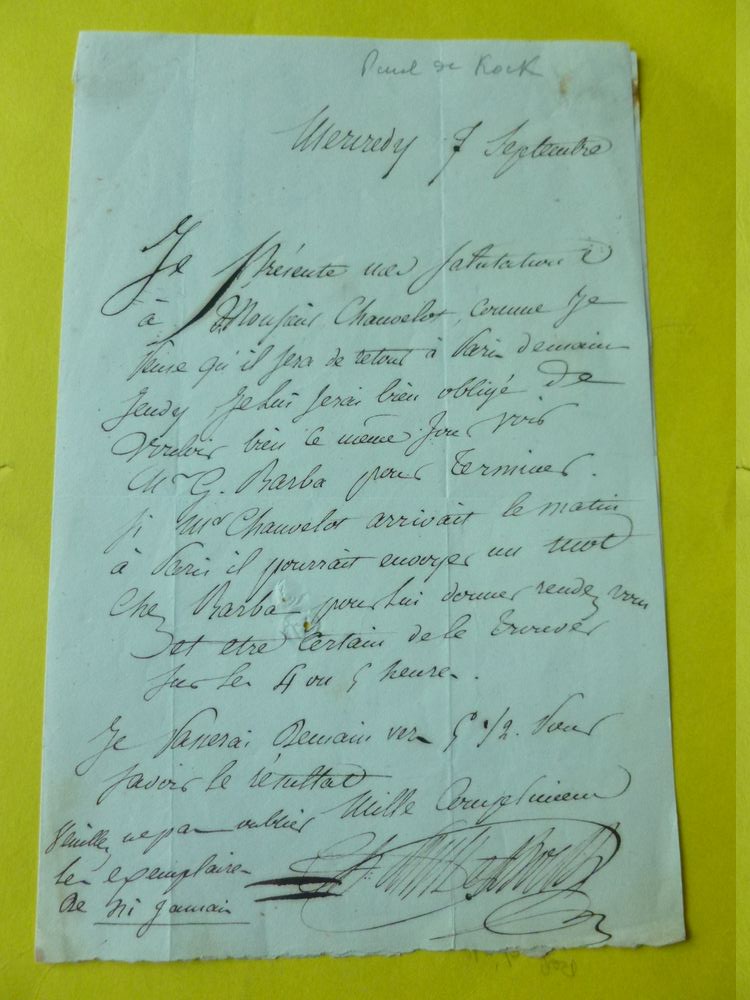 Paul de Kock
Mercredy 7 Septembre
Je Présente mes salutations
à Monsieur Chauvelot, comme Je
Pense qu'il sera de retour à Paris demain
Jeudy Je lui serai bien obligé de
vouloir bien le même Jour voir
Mr G. Barba pour terminer.
si Mr Chauvelot arrivait le matin
à Paris il pourrait envoyer un mot
Chez Barba pour lui donner rendez vous
et etre certain de le trouver
sur les 4 ou 5 heures.
Je Passerai Demain vers 5 h 1/2 Pour
savoir le résultat
Mille Complimens
Veuillez ne pas oublier
les exemplaires
de ni jamais
Paul de Kock